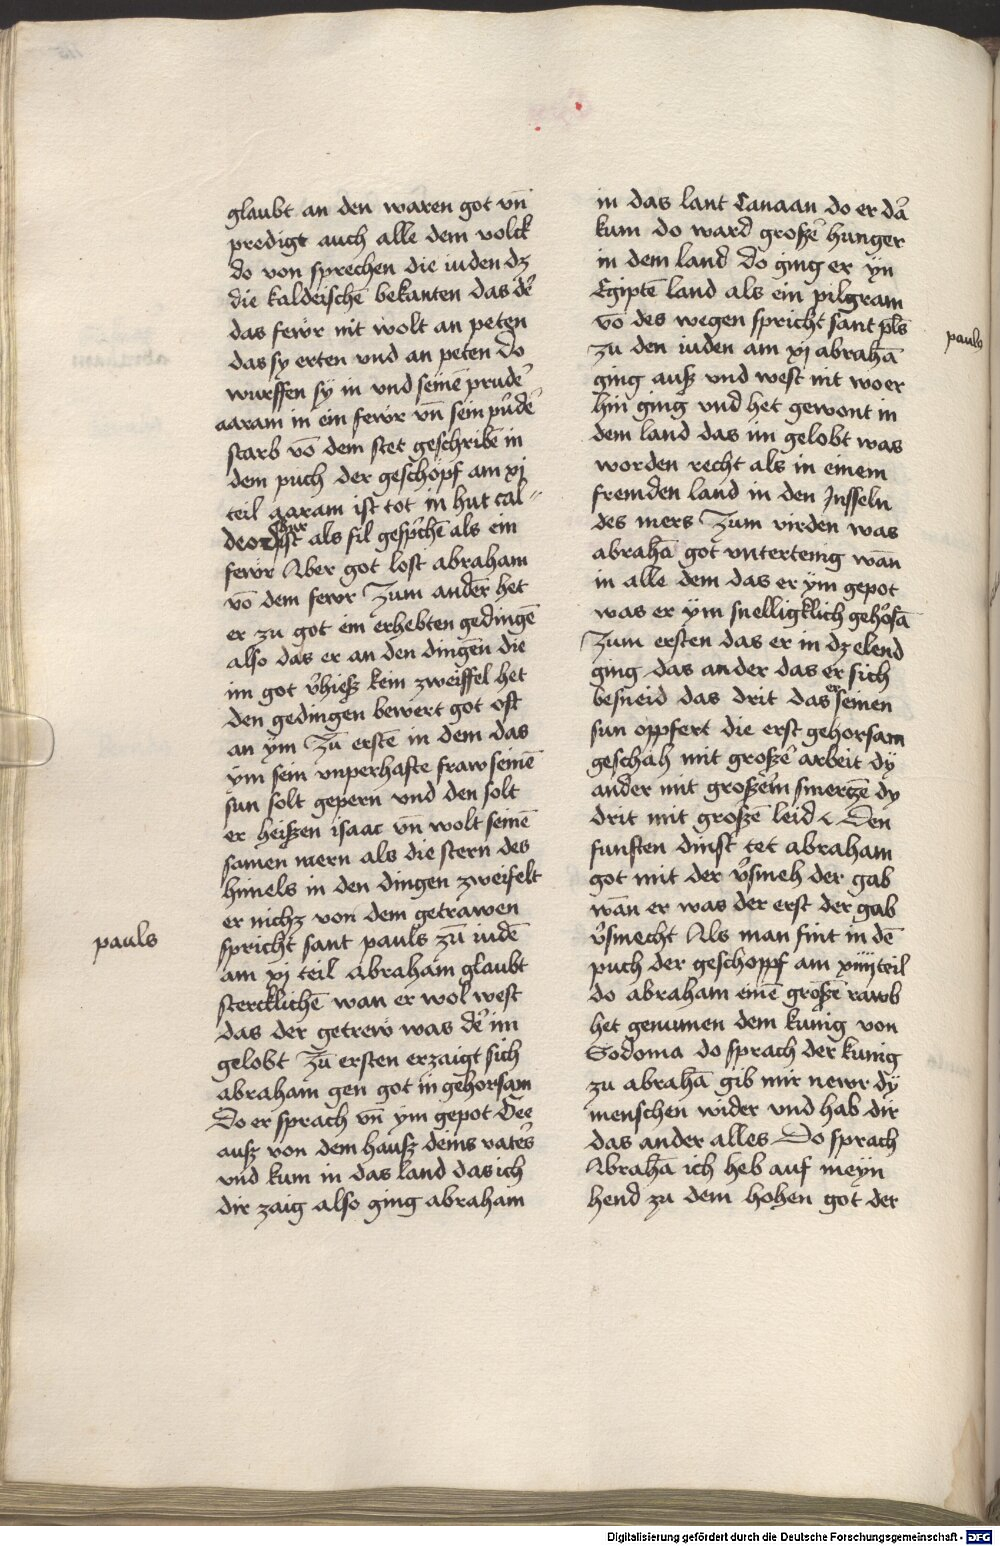 glaubt an den waren got vn̄
predigt auch alle dem volck
do von sprechen die iuden dz
die kaldeischē bekanten das d'
das fewr nit wolt an peten
das sy erten vnd an peten do
wurffen sy in vnd seinē prud'
aaram in ein fewr vn̄ sein pu'd'
starb vō dem stet geschribē in
dem puch der geschopf am xj
teil aaram ist tot in hut cal⸗
deor[ū] hur ist als fil gesp'chē als ein
fewr Aber got lost abraham
vō dem fewr Zum andern het
er zu got ein erhebten gedingē
also das er an den dingen die
im got v'hieß kein zweiffel het
den gedingen bewert got oft
an ym Zū erstē in dem das
ym sein vnperhafte fraw seinē
sun solt gepern vnd den solt
er heißen isaac vn̄ wolt seinē
samen mern als die stern des
himels in den dingen zweifelt
er nichz von dem getrawen
pauls
spricht sant pauls zū iudē
am xj teil abraham glaubt
stercklichē wan er wol west
das der getrew was d' im
gelobt Zū ersten erzaigt sich
abraham gen got in gehorsam
Do er sprach vn̄ ym gepot Gee
auß von dem hauß deins vaters
vnd kum in das land das ich
dir zaig also ging abraham
in das lant Canaan do er dā
kum do ward groß' hunger
in dem land do ging er yn
Egiptē land als ein pilgram
vō des wegen spricht sant pls̄
pauls
zu den iuden am xj abrahā
ging auß vnd west nit wo er
hin ging vnd het gewont in
dem land das im gelobt was
worden recht als in einem
fremden land in den Insseln
des mers Zum virden was
abrahā got vntertenig wān
in alle dem das er ym gepot
was er ym snelligklich gehorsā
Zum ersten das er in dz elend
ging das ander das er sich
besneid das drit das er seinen
sun oppfert die erst gehorsam
geschah mit groß' arbeit dy
ander mit großem smerczē dy
drit mit großē leid Den
funften dinst tet abraham
got mit der v'smeh der gab
wān er was der erst der gab
v'smecht Als man fint in dē
puch der geschoppf am xiiij teil
do abraham einē großē rawb
het genumen dem kunig von
Sodoma do sprach der kunig
zu abrahā gib mir newr dy
menschen wider vnd hab dir
das ander alles Do sprach
Abrahā ich heb auf meyn
hend zu dem hohen got der
Digitalisierung gefördert durch die Deutsche Forschungsgemeinschaft - DFG